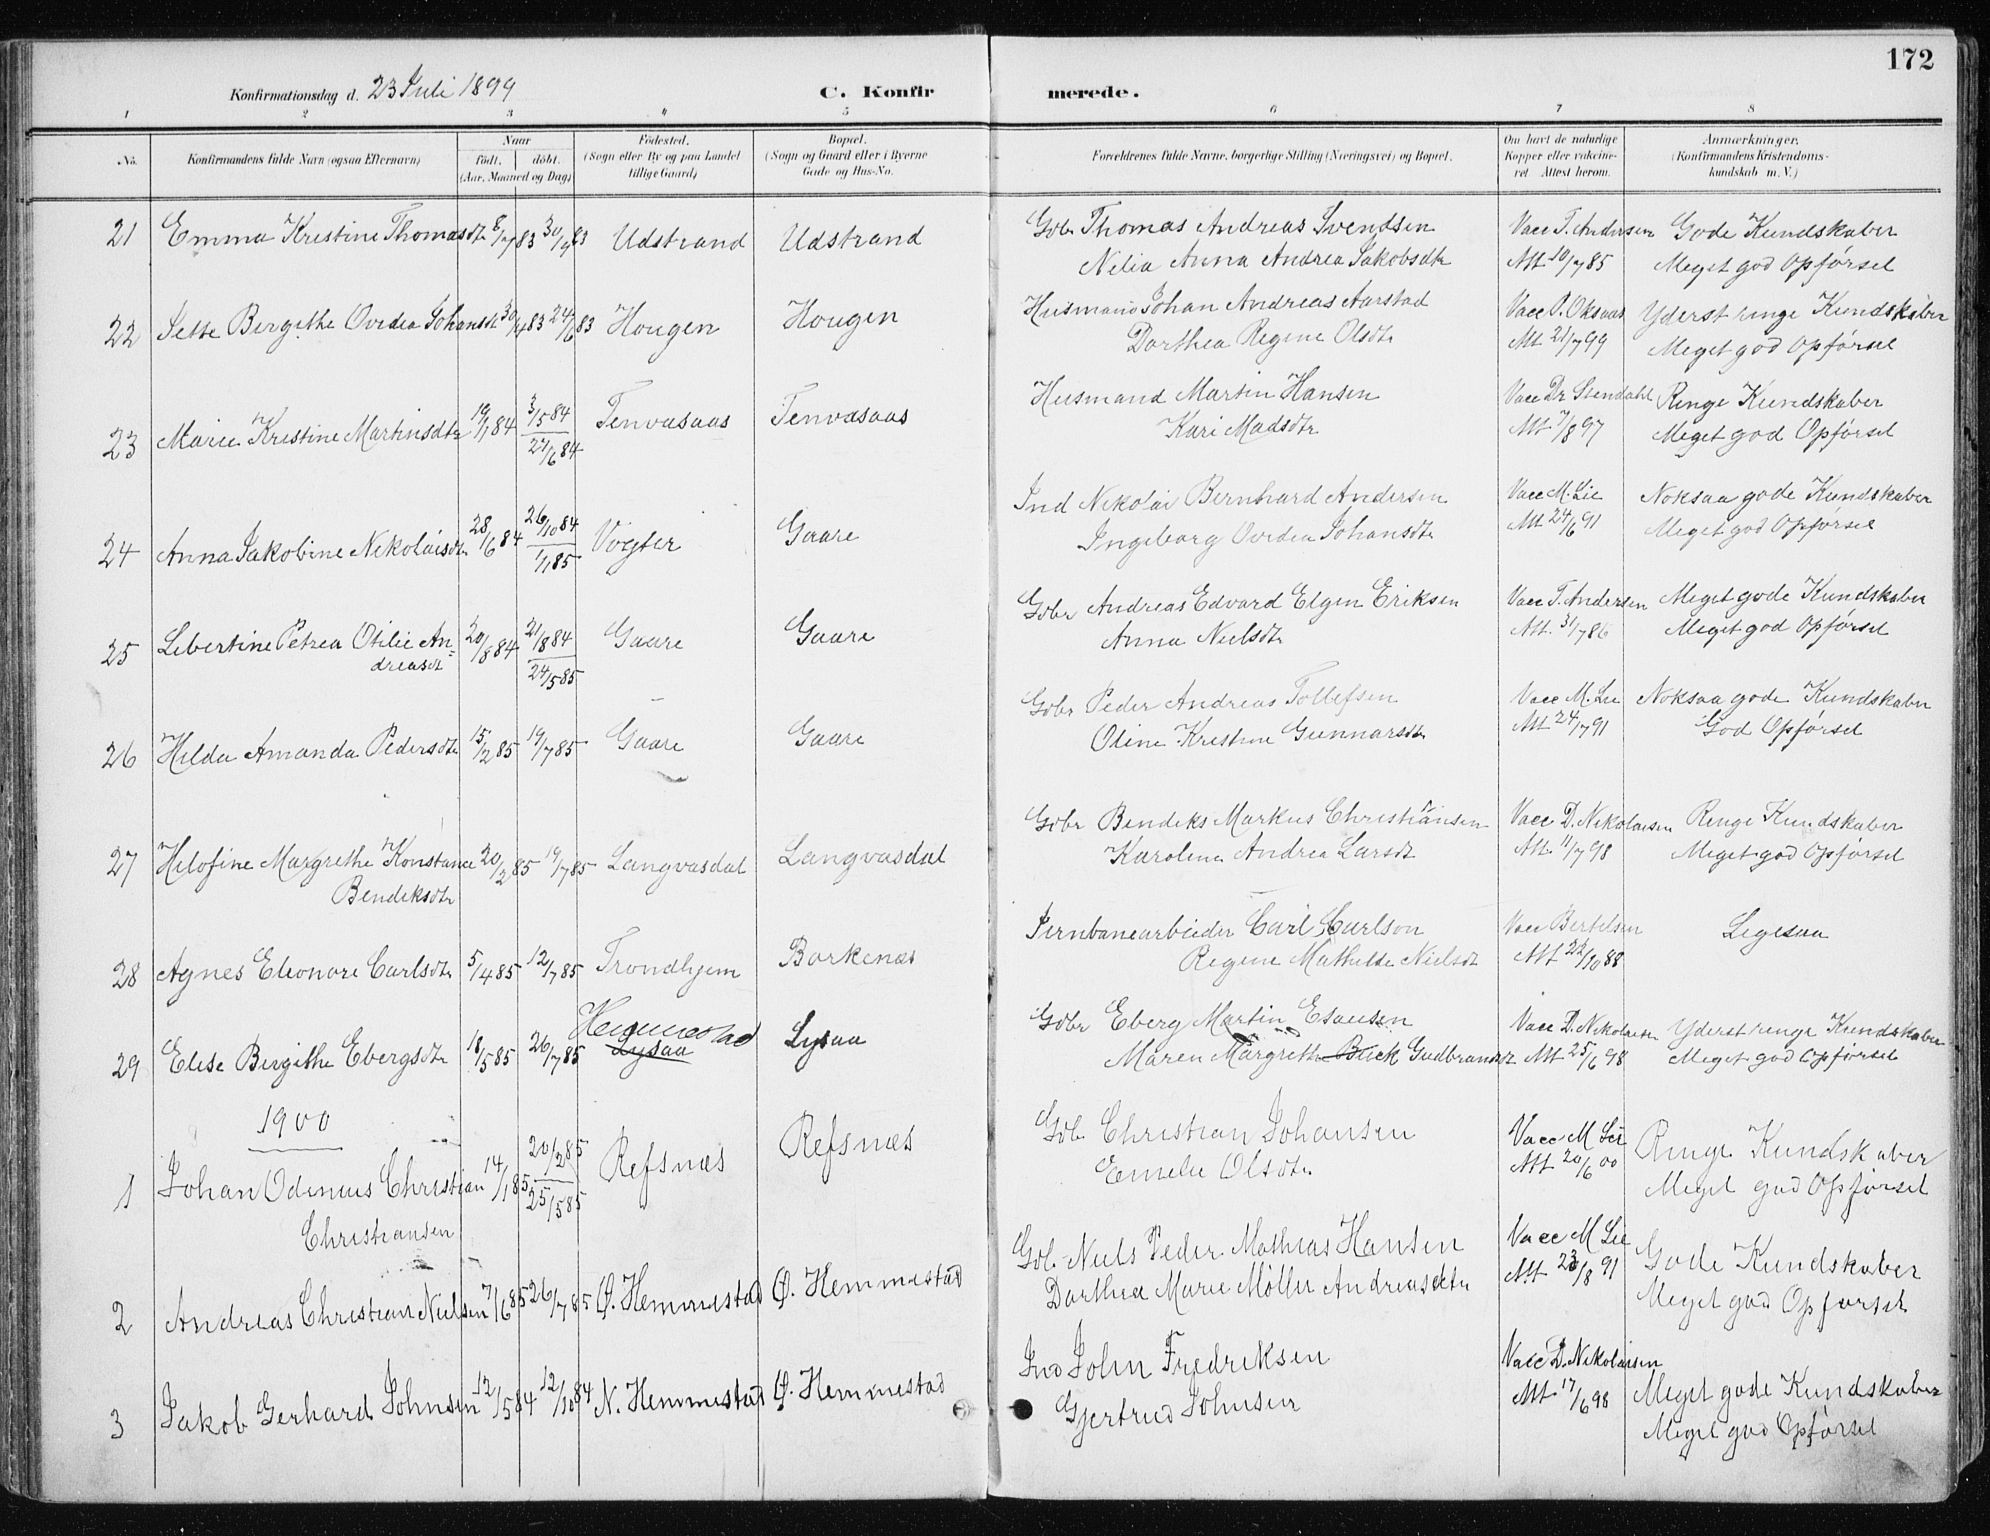 172
Konfirmationsdag d. 23 Juli 1899 C. Konfirmerede.
1 2 3 4 5 6 7 8
No. Konfirmandens fulde Navn (ogsaa Efternavn) Naar født, døbt. (Aar, Maaned og Dag) Fødested. (Sogn eller By og paa Landet tillige Gaard) Bopæl. (Sogn og Gaard eller i Byerne Gade og Hus-No. Forældrenes fulde Navne, borgerlige Stilling (Næringsvei) og Bopæl. Om havt de naturlige Kopper eller vakcineret Attest herom. Anmærkninger. (Konfirmandens Kristendomskundskab m. V.)
21 Emma Kristine Thomasdtr 8/7 83 30/9 83 Udstrand Udstrand Gbr Thomas Andreas Svendsen Vacc T. Andersen Gode Kundskaber
Nelia Anna Andrea Jakobsdtr Att 10/7 85 Meget god Opførsel
22 Jette Birgithe Ovidea Johansdt 30/4 83 24/6 83 Hougen Hougen Husmand Johan Andreas Aarstad Vacc P. Oksaas Yderst ringe Kundskaber
Dorthea Regine Olsdtr Att 21/7 99 Meget god Opførsel
23 Marie Kristine Martinsdtr 19/1 84 3/5 84 Tenvasaas Tenvasaas Husmand Martin Hansen Vacc Dr Stendahl Ringe Kundskaber
27/6 84 Kari Madsdtr Att 7/8 97 Meget god Opførsel
24 Anna Jakobine Nikolaisdtr 28/6 84 26/10 84 Vøgter Gaare Ind Nikolai Bernhard Andersen Vacc M. Lie Noksaa gode Kundskaber
1/1 85 Ingeborg Ovidea Johansdtr Att 24/6 91 Meget god Opførsel
25 Libertine Petrea Otilie An= 20/8 84 21/8 84 Gaare Gaare Gbr Andreas Edvard Elgen Eriksen Vacc T. Andersen Meget gode Kundskaber
dreasdt 24/5 85 Anna Nielsdtr Att. 31/7 86 Meget god Opførsel
26 Hilda Amanda Pedersdtr 15/2 85 19/7 85 Gaare Gaare Gbr Peder Andreas Tollefsen Vacc M. Lie Noksaa gode Kundskaber
Oline Kristine Gunnarsdtr Att 24/7 91 God Opførsel
27 Hilofine Margrethe Konstance 20/2 85 19/7 85 Langvasdal Langvasdal Gbr Bendiks Markus Christiansen Vacc D. Nikolaisen Ringe Kundskaber
Bendiksdtr Karoline Andrea Larsdt Att. 11/7 98 Meget god Opførsel
28 Agnes Eleonore Carlsdtr 5/4 85 12/7 85 Trondhjem Borkenæs Jernbanearbeider Carl Carlson Vacc Bertelsen Ligesaa
Regine Mathilde Nielsdt Att 22/10 88
29 Elise Birgithe Ebergsdtr 18/5 85 26/7 85 Hemmestad Lysaa Lysaa Gbr Eberg Martin Esausen Vacc D. Nikolaisen Yderst ringe Kundskaber
Maren Margrethe Buck Gudbrandsdt Att 25/6 98 Meget god Opførsel
1900
1 Johan Odinius Christian 14/1 85 20/2 85 Refsnæs Refsnæs Gbr Christian Johansen Vacc M Lie Ringe Kundskaber
Christiansen 25/5 85 Emelie Olsdtr Att 20/6 00 Meget god Opførsel
2 Andreas Christian Nielsen 7/6 85 26/7 85 Ø. Hemmestad Ø. Hemmestad Gbr Niels Peder Mathias Hansen Vacc M Lie Gode Kundskaber
Dorthea Marie Møller Andreasdtr Att 23/8 91 Meget god Opførsel
3 Jakob Gerhard Johnsen 12/5 84 12/10 84 N. Hemmestad Ø. Hemmestad Ind John Fredriksen Vacc D. Nikolaisen Meget gode Kundskaber
Gjertrud Johnsen Att 17/6 98 Meget god Opførsel